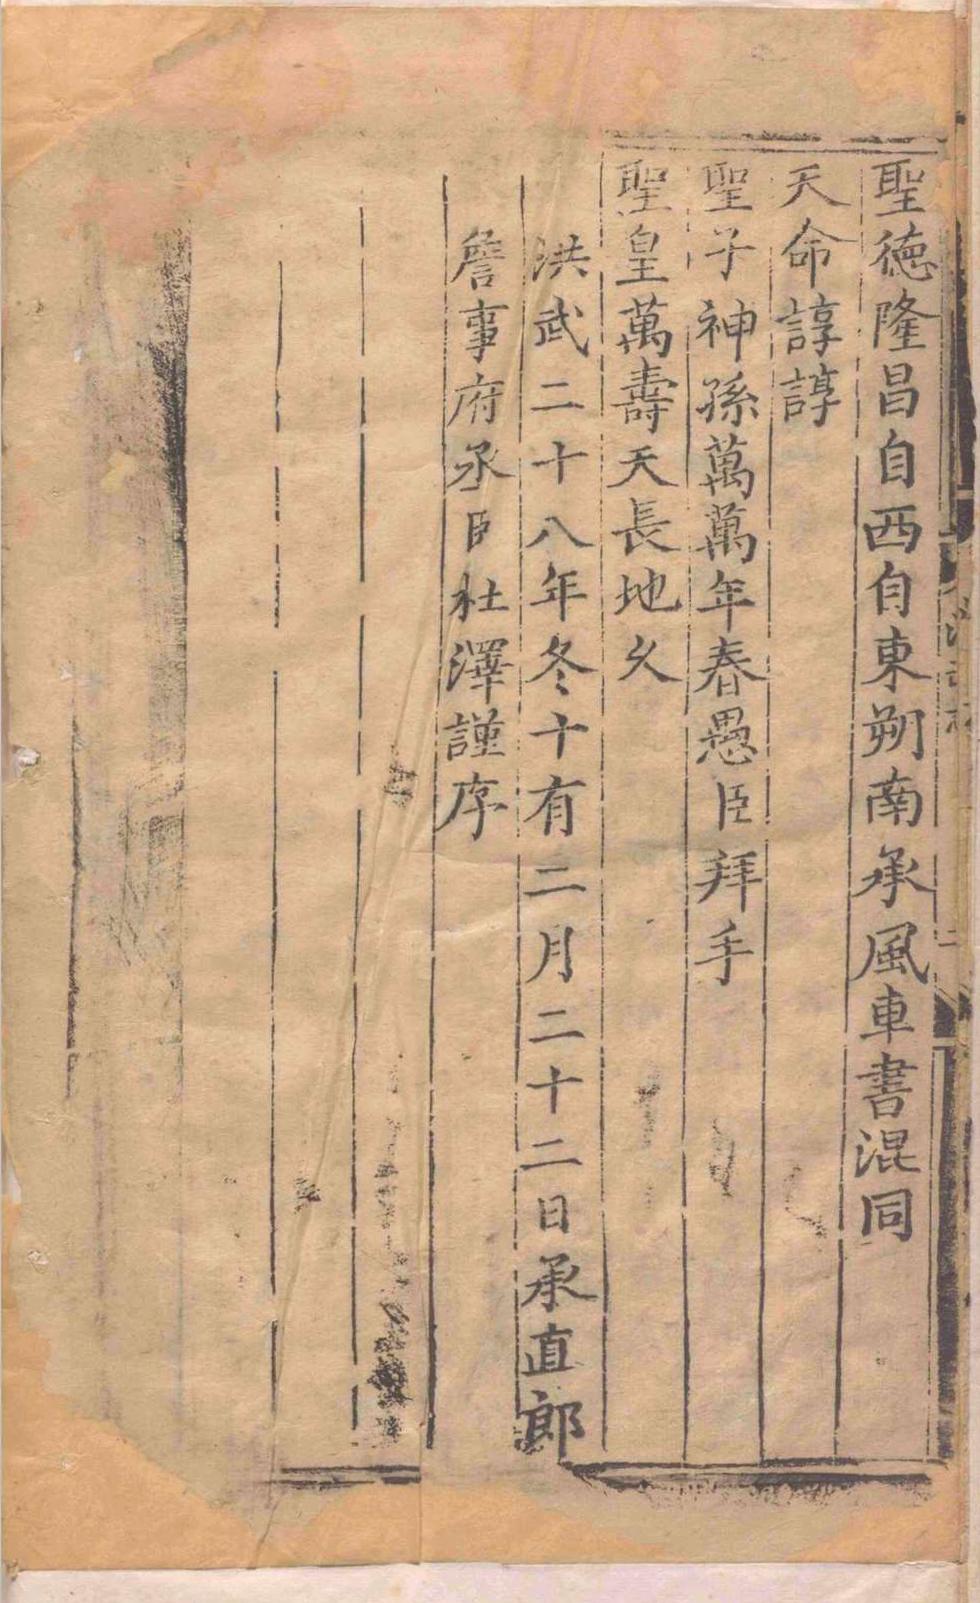 聖德隆昌自西自東朔南承風車書混同
天命諄諄
聖子神孫萬萬年春愚臣拜手
聖皇萬壽天長地久
洪武二十八年冬十有二月二十二日承直郎
詹事府丞臣杜澤謹序